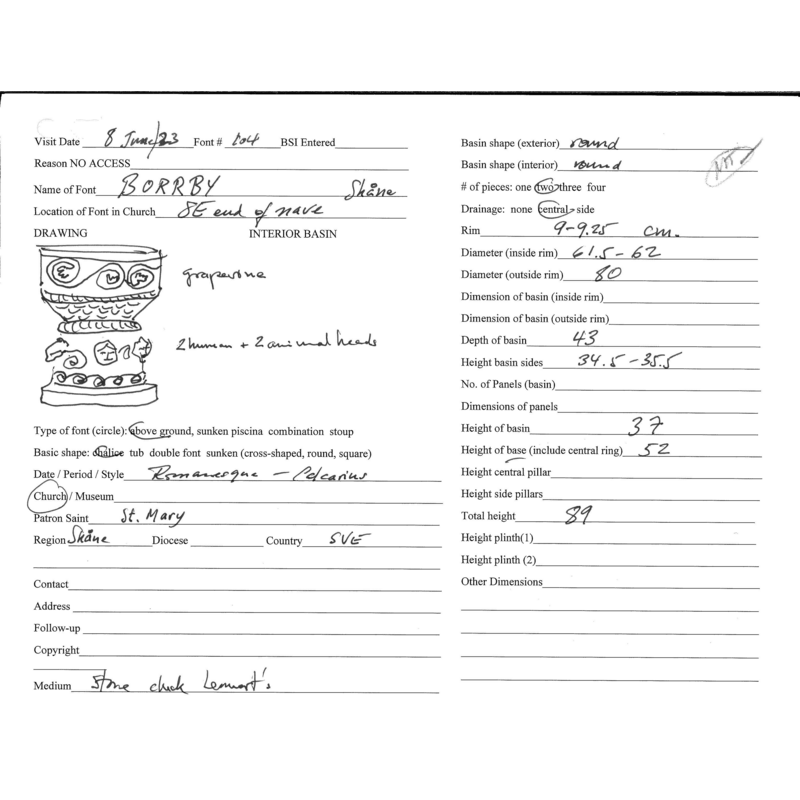 Visit Date 8 June/23 Font # 104 BSI Entered
Reason NO ACCESS
Name of Font BORRBY Skåne
Location of Font in Church SE end of nave
DRAWING INTERIOR BASIN
grapevine
2 human + 2 animal heads
Type of font (circle): above ground, sunken piscina combination stoup
Basic shape: chalice tub double font sunken (cross-shaped, round, square)
Date / Period / Style Romanesque –
Church / Museum
Patron Saint St. Mary
Region Skåne Diocese Country SVE
Contact
Address
Follow-up
Copyright
Medium stone check Lennart's
Basin shape (exterior) round
Basin shape (interior) round
# of pieces: one two three four
Drainage: none central side
Rim 9-9.25 cm.
Diameter (inside rim) 61.5-62
Diameter (outside rim) 80
Dimension of basin (inside rim)
Dimension of basin (outside rim)
Depth of basin 43
Height basin sides 34.5-35.5
No. of Panels (basin)
Dimensions of panels
Height of basin 37
Height of base (include central ring) 52
Height central pillar
Height side pillars
Total height 89
Height plinth(1)
Height plinth (2)
Other Dimensions